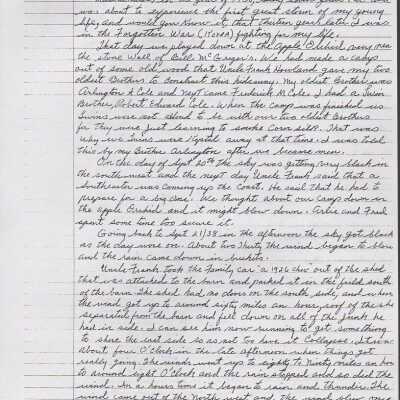 was about to experience the first great storm of my young
life, and would you know it that thirteen years later I was
in the Forgotten War (Korea) fighting for my life.
That day we played down at the Apple Orchard, away near
the stone Wall of Bill McGregor's. We had made a camp
out of some old wood that Uncle Frank Howland gave my two
oldest Brothers to construct this hideaway. My oldest Brother was
Arlington A Cole and next came Fredrick M. Cole. I had a twin
Brother, Robert Edward Cole. When the camp was finished us
Twins were not asked to be with our two oldest Brothers
for they were just learning to smoke Corn silk. That was
why we Twins were kept away at that time. I was told
this by my Brother Arlington after we became men.
On the day of Sept 20th the sky was getting very black in
the south west and the next day Uncle Frank said that a
southeaster was coming up the Coast. He said that he had to
prepare for a big one. We thought about our camp down in
the apple Orchard and it might blow down. Arlie and Fred
spent some time too secure it.
Going back to Sept 21/38 in the afternoon the sky got black
as the day wore on. About two thirty the wind began to blow
and the rain came down in buckets.
Uncle Frank took the Family car "a 1926 chev" out of the shed
that was attached to the barn and parked it in the field south
of the barn. The shed had no doors on the south side, and when
the wind got up to around sixty miles an hour, roof of the shed
separated from the barn and fell down on all of the junk he
had in side. I can see him now running to get something
to shore the east side so as not too have it Collapse.
about four O'Clock in the late afternoon when things got
really going. The winds went up to eighty to Ninety miles an hour
to around eight O'Clock and the rain stopped and so died the
wind. In a hours time it began to rain and thunder. The
wind came out of the North west and the wind blew